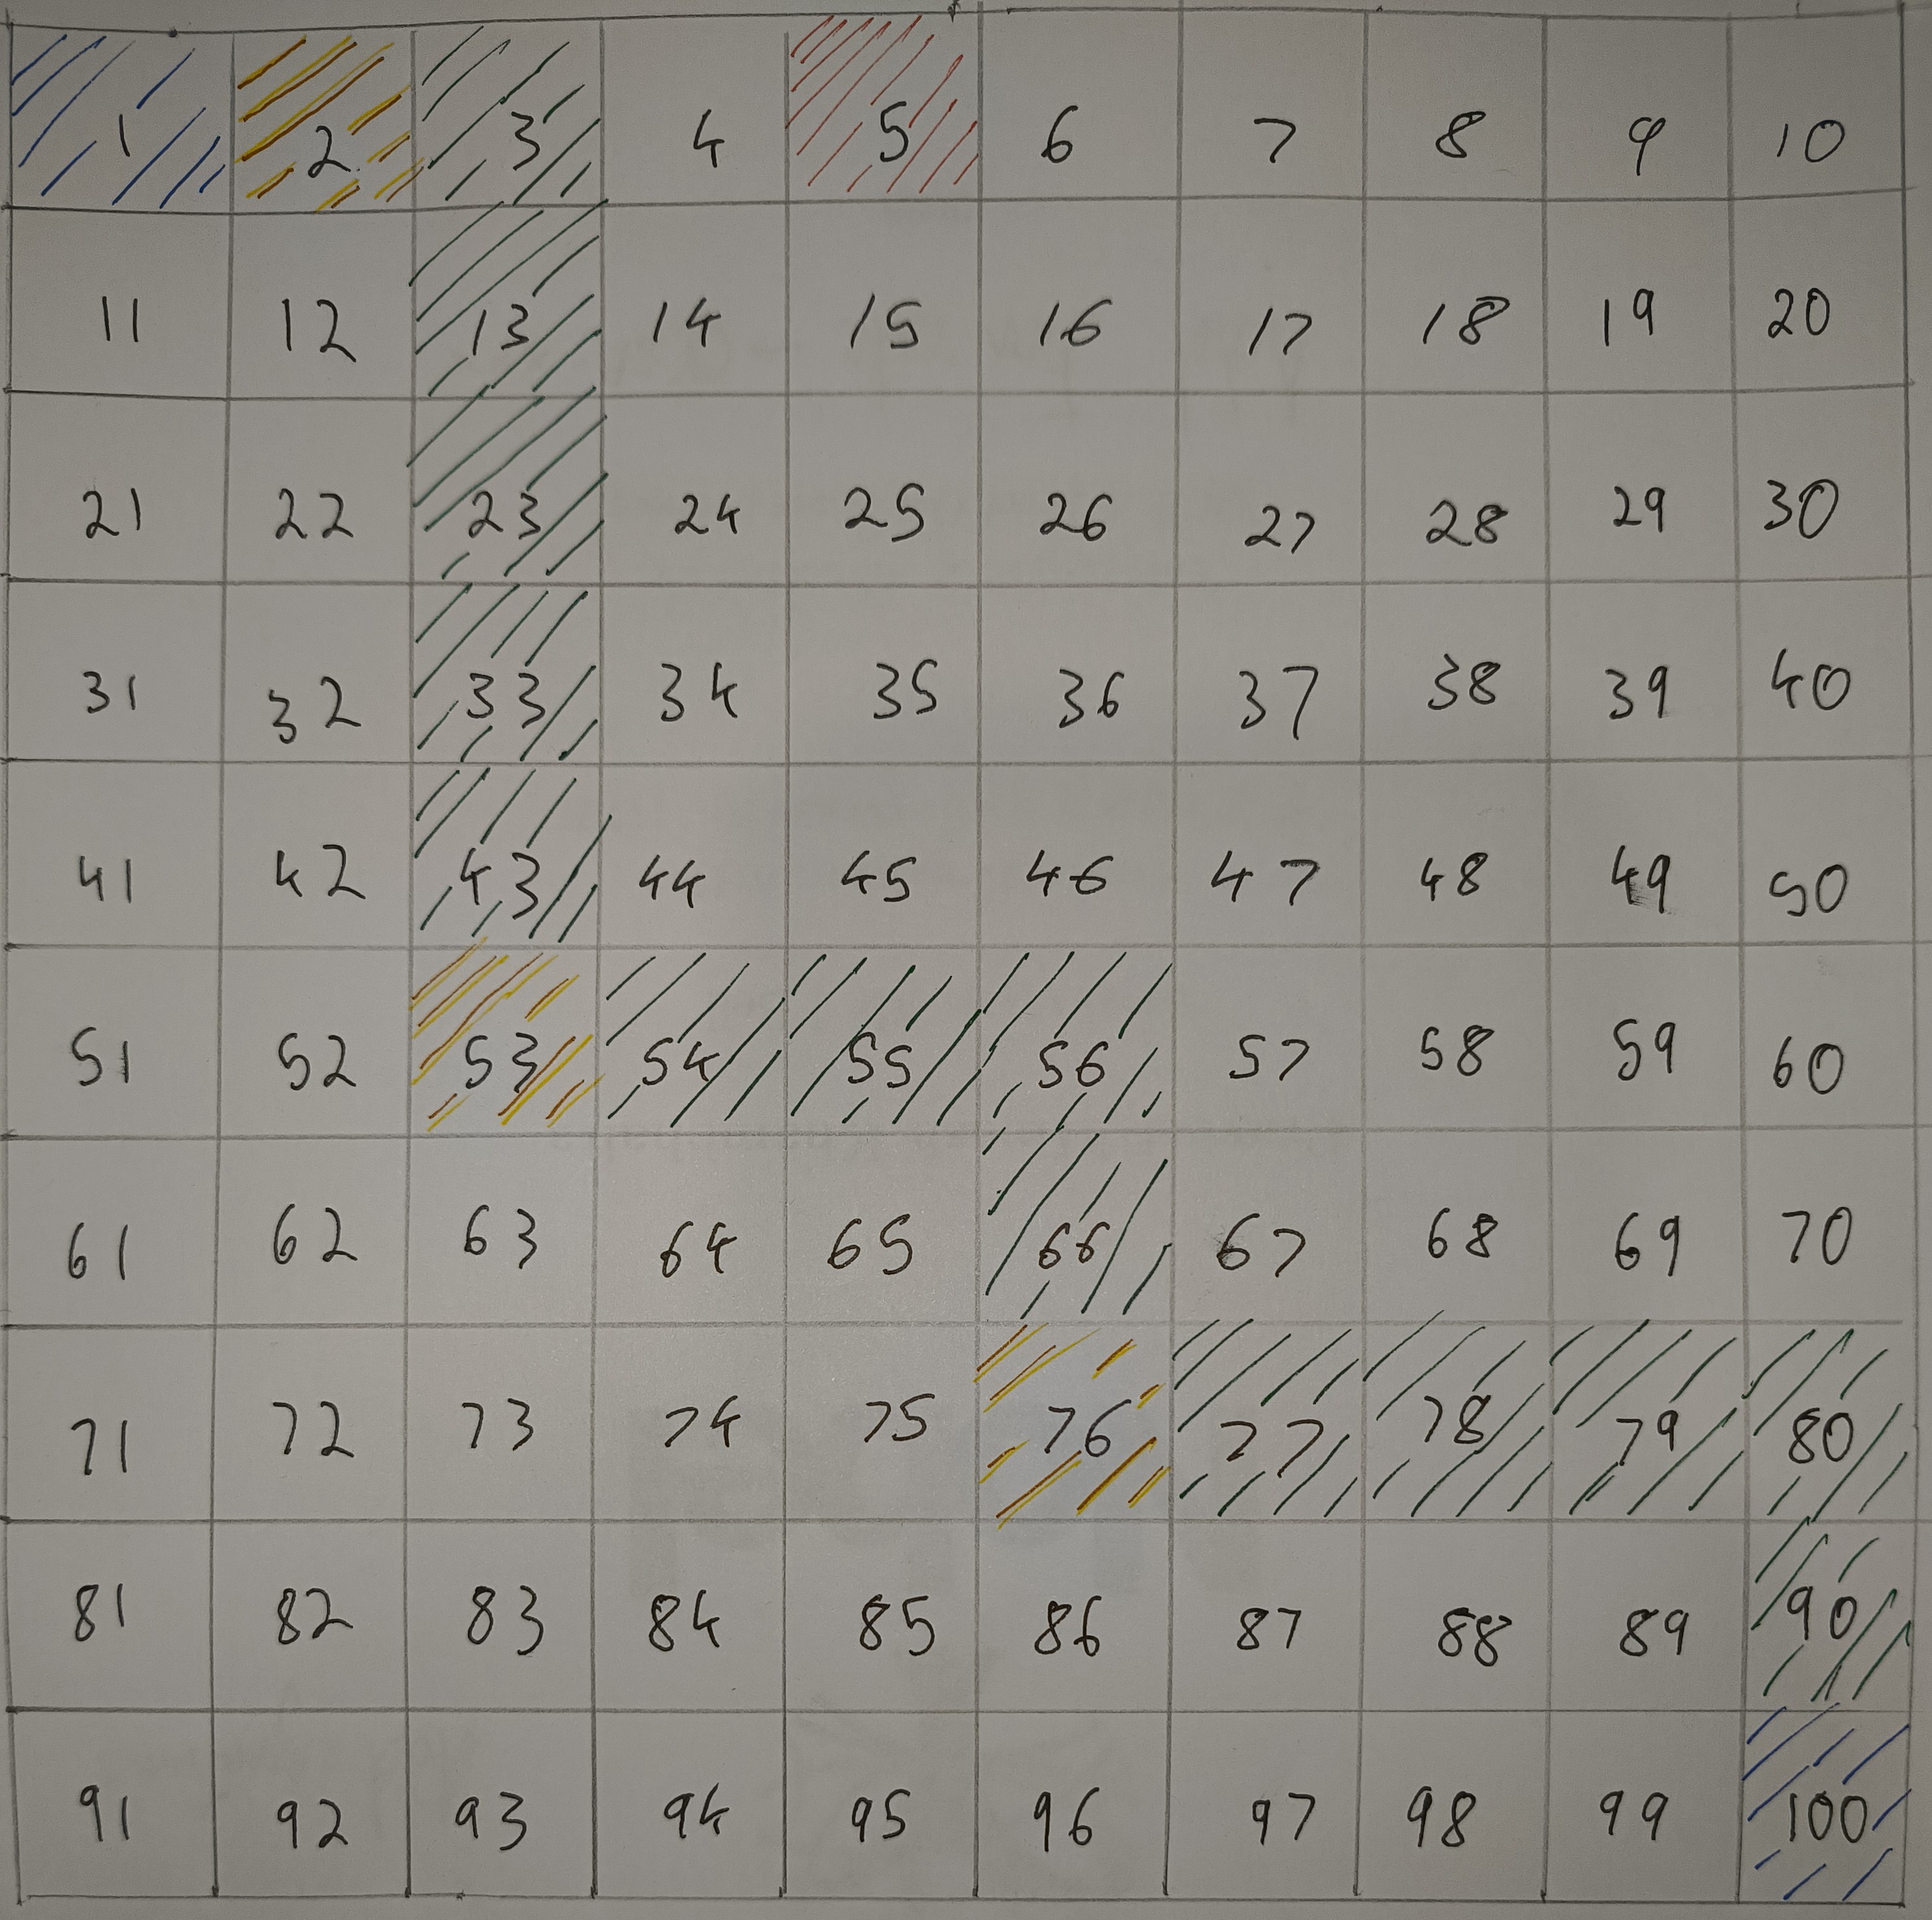 1 2 3 4 5 6 7 8 9 10
11 12 13 14 15 16 17 18 19 20
21 22 23 24 25 26 27 28 29 30
31 32 33 34 35 36 37 38 39 40
41 42 43 44 45 46 47 48 49 50
51 52 53 54 55 56 57 58 59 60
61 62 63 64 65 66 67 68 69 70
71 72 73 74 75 76 77 78 79 80
81 82 83 84 85 86 87 88 89 90
91 92 93 94 95 96 97 98 99 100